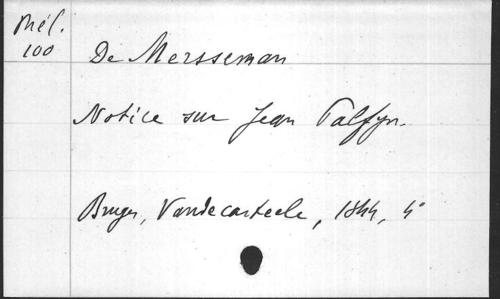 Mél.
100
De Mersseman
Notice sur Jean Palfyn.
Bruges, Vandecasteele, 1844, 4°